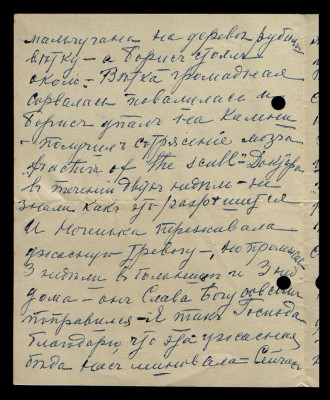 мальчугана на деревѣ рубилъ
вѣтку — а Борисъ стоялъ
около — Вѣтка громадная
сорвалась повалилась и
Борисъ упалъ на камни
— получилъ сотрясеніе мозга
fractura of the scull — Доктора
въ теченіи двухъ недѣль — не
знали какъ это разрѣшится
и Ношка переживала
ужасную тревогу —, но пролежавъ
3 недѣли въ больницѣ и 3 нед
дома — онъ Слава Богу совсѣмъ
поправился — Я такъ Господа
благодарю что эта ужасная
бѣда насъ миновала — Сейчасъ